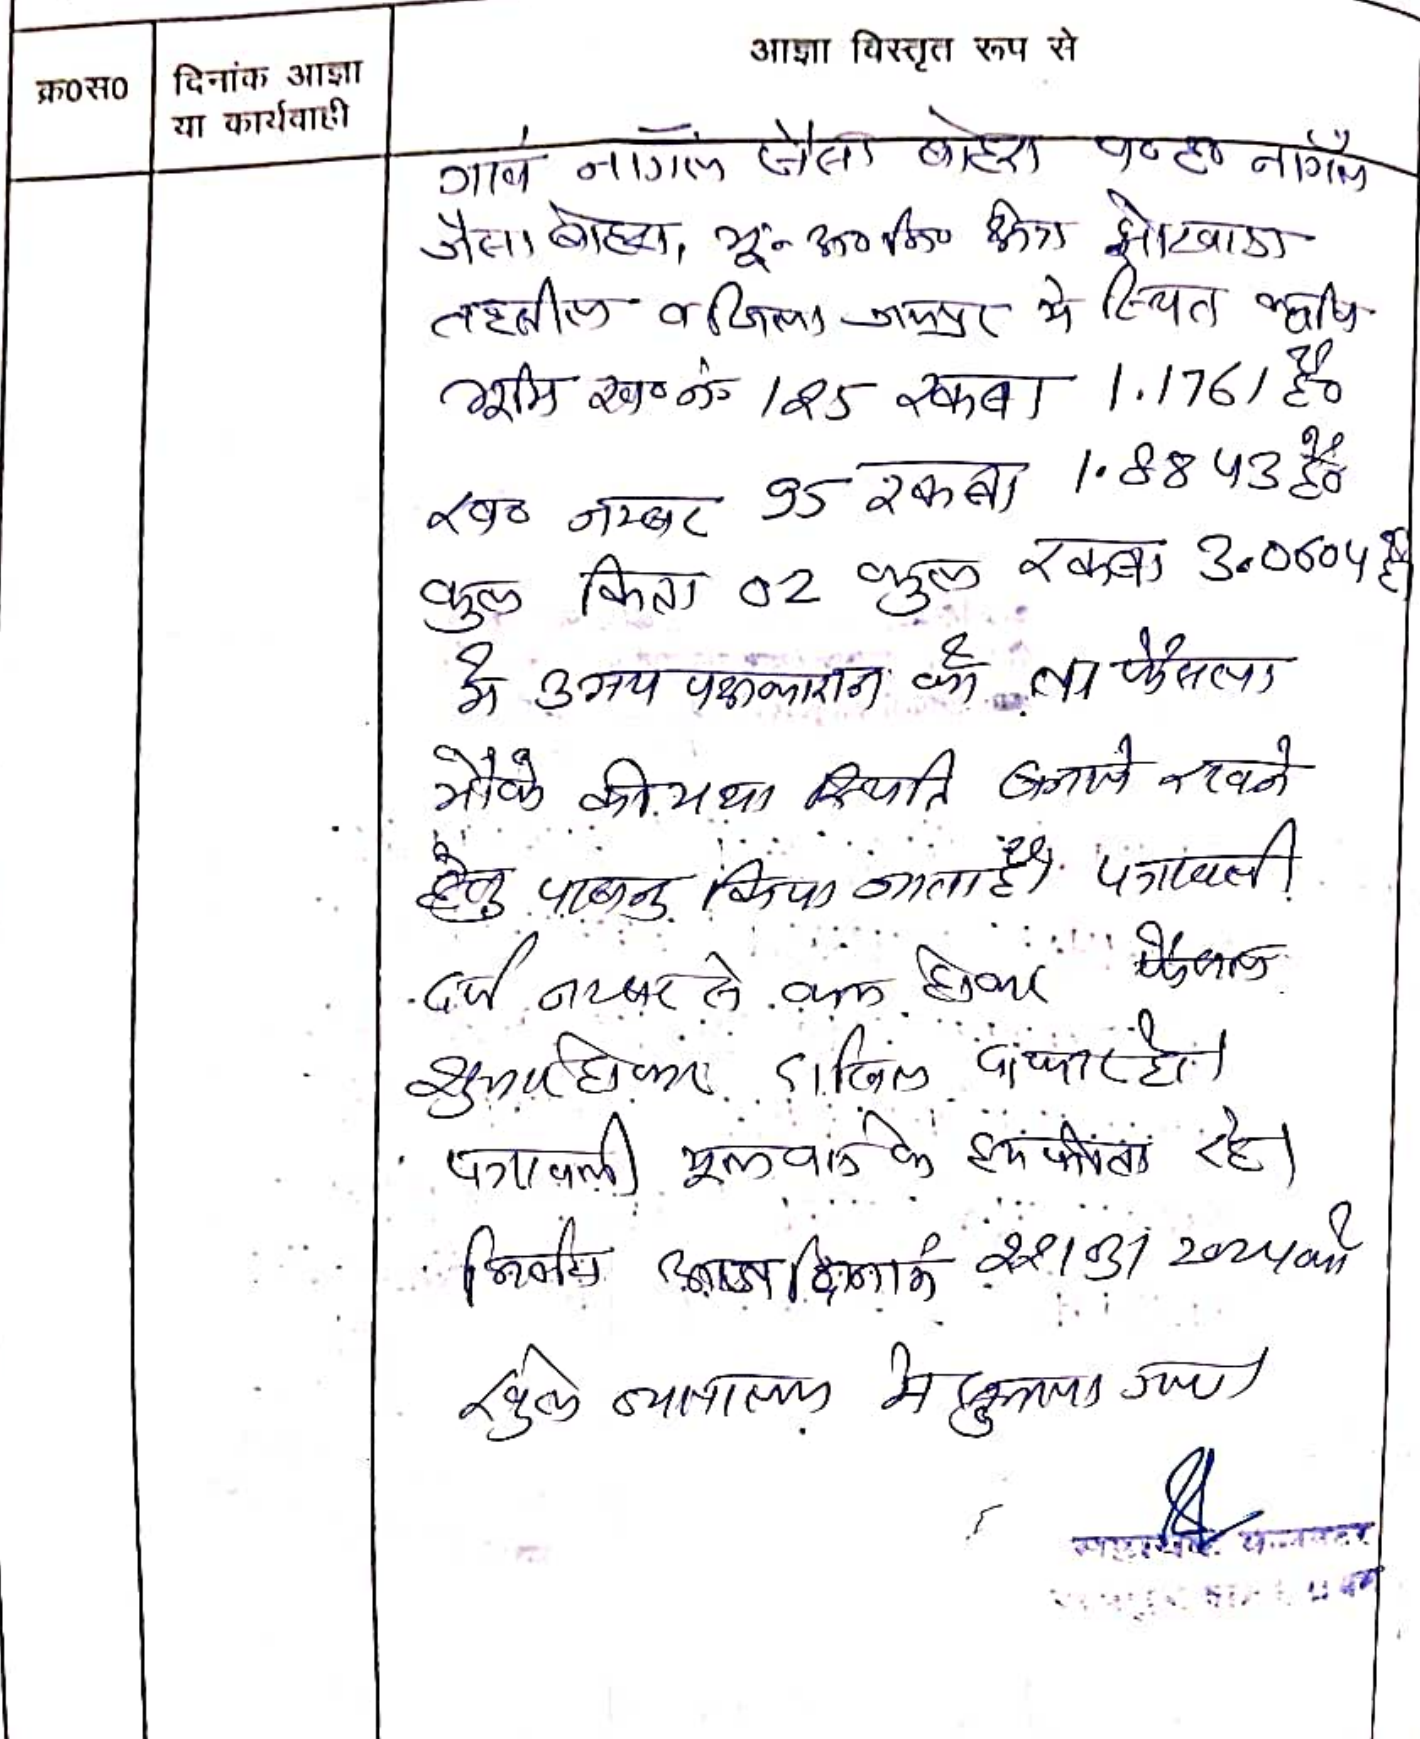 क्र0स0
दिनांक आज्ञा
या कार्यवाही
आज्ञा विस्तृत रूप से
गांव नांगल जैसा बोहरा प०ह० नांगल
जैसा बोहरा, भू० अ० नि० क्षेत्र झोटवाडा
तहसील व जिला जयपुर मे स्थित कृषि
भूमि ख० नं० 185 रकबा 1.1761 है०
ख० नम्बर 95 रकबा 1.8843 है०
कुल किता 02 कुल रकबा 3.0604 है
में उभय पक्षकारान को ता फैसला
मौके की यथा स्थिति बनाये रखने
हेतु पाबन्द किया जाता है। पत्रावली
दर्ज नम्बर से कम होकर फैसल
शुमार होकर दाखिल दफ्तर हो।
पत्रावली मूलवाद के हमफीता रहे।
निर्णय आज दिनांक 22/03/2024 को
खुले न्यायालय मे सुनाया गया।
सहायक कलक्टर